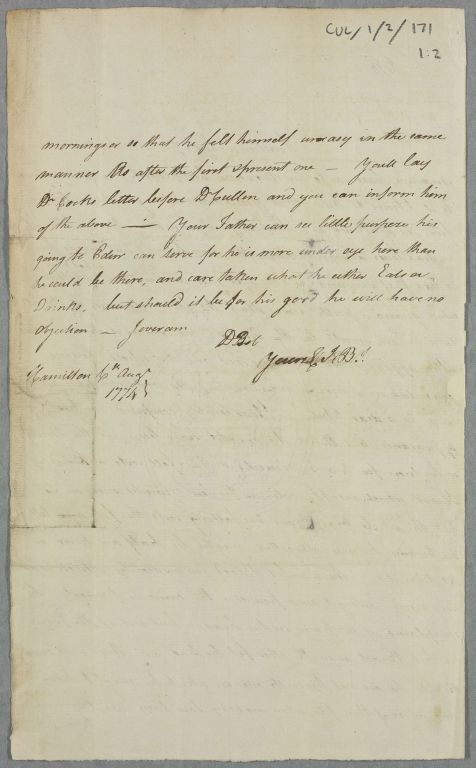 CUL/1/2/171
1:2
mornings or so that he felt himself uneasy in the same
manner As after the first & present one — Youll lay
Dr Cocks letter before Dr Cullen and you can inform him
of the above — Your Father can see little purpose his
going to Edinr can serve for he is more under eye here than
he could be there, and care taken what he either Eats or
Drinks, but should it be for his good he will have no
objection — I ever am
Yours
Hamilton 6th Augt
1774